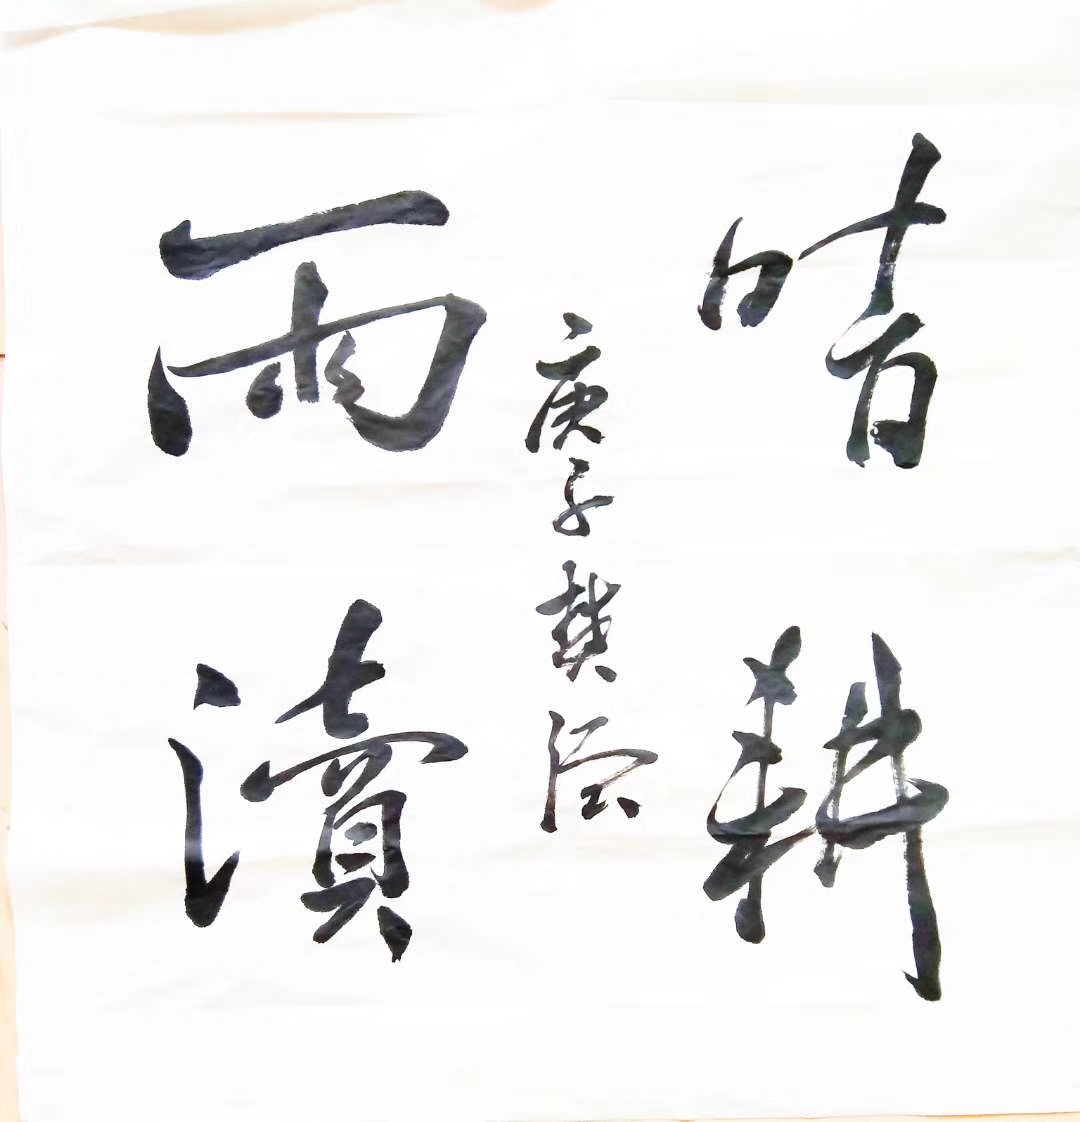 晴耕
雨讀
庚子樊